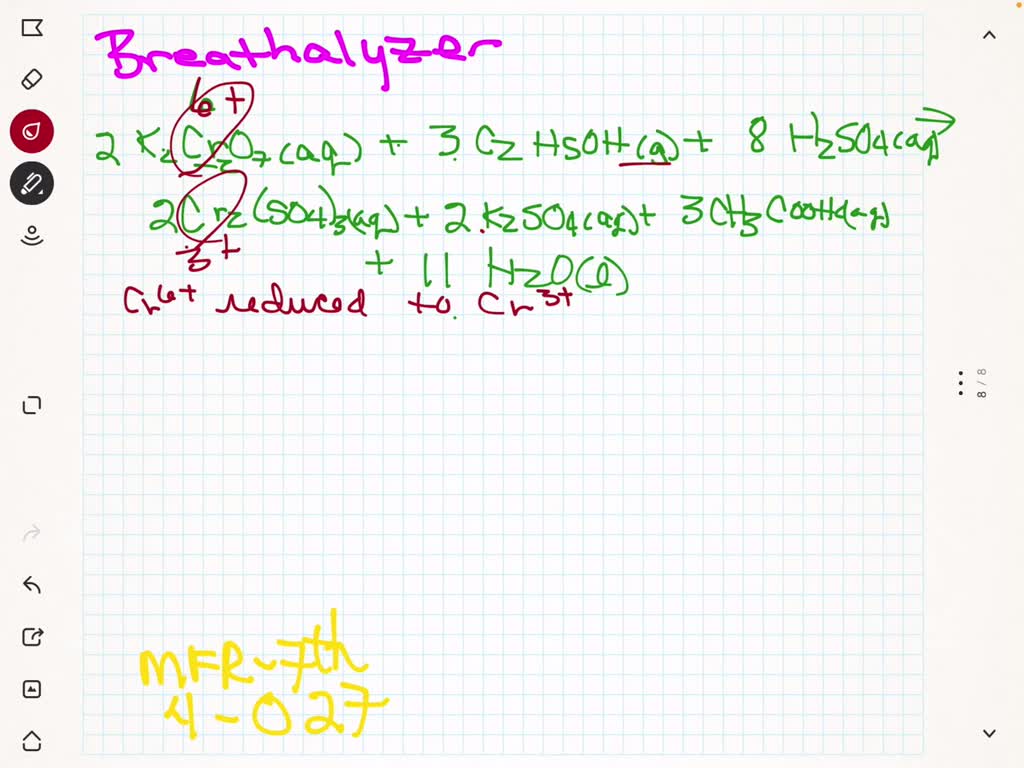 Breathalyzer
6+
2 K2Cr2O7(aq) + 3 C2H5OH(g) + 8 H2SO4(aq) →
2Cr2(SO4)3(aq) + 2 K2SO4(aq) + 3CH3COOH(aq)
3+
+ 11 H2O(l)
Cr6+ reduced to Cr3+
8/8
MFR-7th
4-027